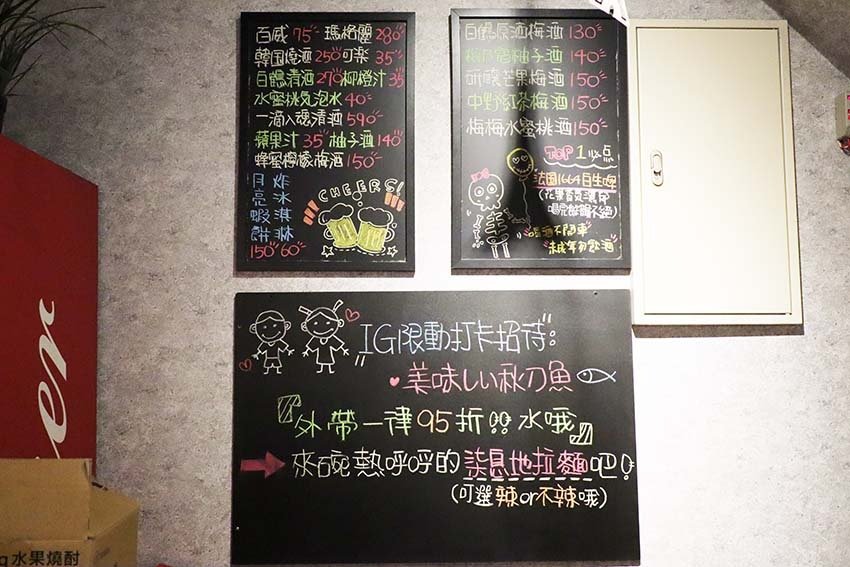 百威 75 瑪格麗 280
韓国燒酒 250 可樂 35
白鶴清酒 270 柳橙汁 35
水蜜桃気泡水 40
一滴入魂清酒 590
蘋果汁 35 柚子酒 140
蜂蜜檸檬梅酒 150
月亮蝦餅 150
炸冰淇淋 60
CHEERS!
白鶴原酒梅酒 130
梅乃宿柚子酒 140
研釀芒果梅酒 150
中野紅茶梅酒 150
梅梅水蜜桃酒 150
TOP 1 必点
法國1664白生啤
喝酒不開車
未成年勿飲酒
IG限動打卡招待:
美味しい秋刀魚
『外帶一律95折!! 水哦』
來碗熱呼呼的柒息地拉麵吧!
(可選辣or不辣哦)
水果燒酎